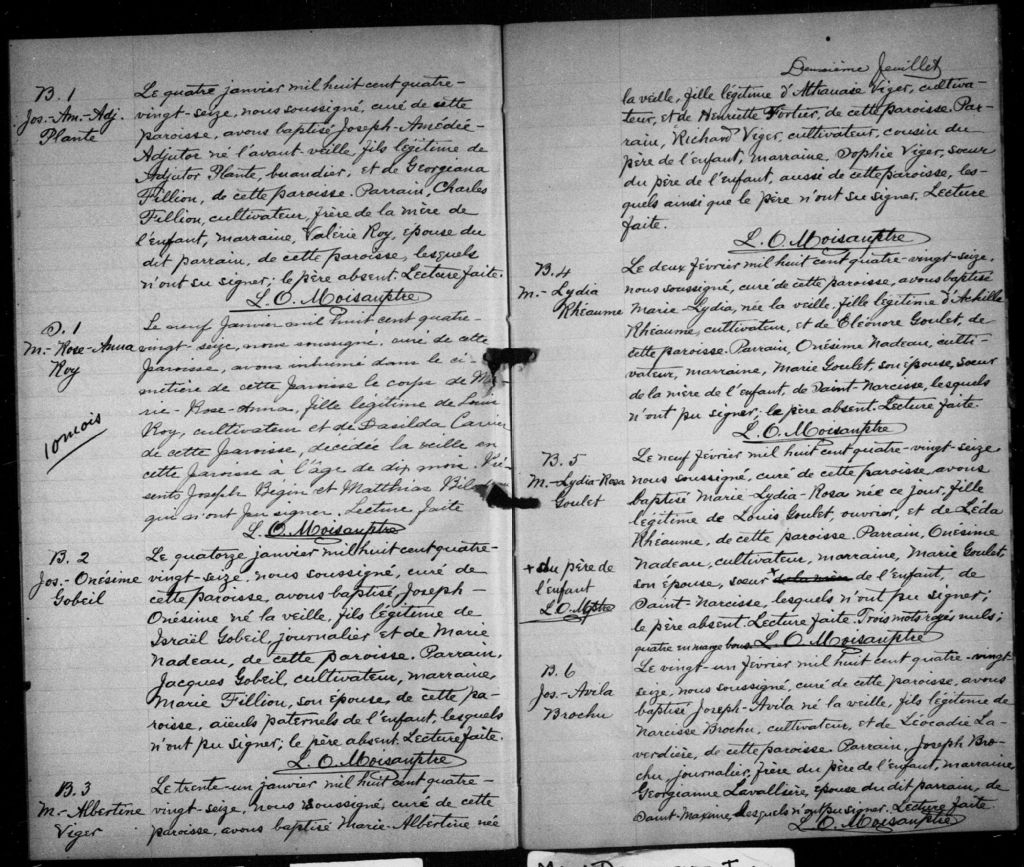 B. 1
Jos.-Am.-Adj.
Plante
Le quatre janvier mil huit cent quatre-
vingt-seize, nous soussigné, curé de cette
paroisse, avons baptisé Joseph-Amédée-
Adjutor né l'avant-veille, fils légitime de
Adjutor Plante, buandier, et de Georgiana
Fillion, de cette paroisse. Parrain, Charles
Fillion, cultivateur, frère de la mère de
l'enfant, marraine, Valérie Roy, épouse du
dit parrain, de cette paroisse, lesquels
n'ont su signer; le père absent. Lecture faite.
L. O. Moisan ptre
S. 1
M.-Rose-Anna
Roy
10 mois
Le neuf Janvier mil huit cent quatre-
vingt-seize, nous soussigné, curé de cette
Paroisse, avons inhumé dans le ci-
metière de cette Paroisse le corps de Ma-
rie-Rose-Anna, fille légitime de Louis
Roy, cultivateur et de Dasilda Carrier
de cette Paroisse, décédée la veille en
cette Paroisse à l'âge de dix mois. Pré-
sents Joseph Bégin et Matthias
qui n'ont pu signer. Lecture faite
L. O. Moisan ptre
B. 2
Jos.-Onésime
Gobeil
Le quatorze janvier mil huit cent quatre-
vingt-seize, nous soussigné, curé de
cette paroisse, avons baptisé, Joseph-
Onésime né la veille, fils légitime de
Israël Gobeil, journalier et de Marie
Nadeau, de cette paroisse. Parrain,
Jacques Gobeil, cultivateur, marraine,
Marie Fillion, son épouse, de cette pa-
roisse, aïeuls paternels de l'enfant, lesquels
n'ont pu signer; le père absent. Lecture faite.
L. O. Moisan ptre
B. 3
M.-Albertine
Viger
Le trente-un janvier mil huit cent quatre-
vingt-seize, nous soussigné, curé de cette
paroisse, avons baptisé Marie-Albertine née
Deuxième feuillet
la veille, fille légitime d'Athanase Viger, cultiva-
teur, et de Henriette Fortier, de cette paroisse. Par-
rain, Richard Viger, cultivateur, cousin du
père de l'enfant, marraine, Sophie Viger, soeur
du père de l'enfant, aussi de cette paroisse, les-
quels ainsi que le père n'ont su signer. Lecture
faite.
L. O. Moisan ptre
B. 4
M.-Lydia
Rhéaume
Le deux février mil huit cent quatre-vingt-seize,
nous soussigné, curé de cette paroisse, avons baptisé
Marie-Lydia, née la veille, fille légitime d'Achille
Rhéaume, cultivateur, et de Eléonore Goulet, de
cette paroisse. Parrain, Onésime Nadeau, culti-
vateur, marraine, Marie Goulet, son épouse, soeur
de la mère de l'enfant, de Saint-Narcisse, lesquels
n'ont pu signer; le père absent. Lecture faite.
L. O. Moisan ptre
B. 5
M.-Lydia-Rosa
Goulet
Le neuf février mil huit cent quatre-vingt-seize
nous soussigné, curé de cette paroisse, avons
baptisé Marie-Lydia-Rosa née ce jour, fille
légitime de Louis Goulet, ouvrier, et de Léda
Rhéaume, de cette paroisse. Parrain, Onésime
Nadeau, cultivateur, marraine, Marie Goulet
son épouse, soeur + de la mère de l'enfant, de
Saint-Narcisse, lesquels n'ont pu signer;
le père absent. Lecture faite. Trois mots rayés nuls;
quatre en marge bons. L. O. Moisan ptre
+ du père de
l'enfant
L. O. M. ptre
B. 6
Jos.-Avila
Brochu
Le vingt-un février mil huit cent quatre-vingt
seize, nous soussigné, curé de cette paroisse, avons
baptisé Joseph-Avila né la veille, fils légitime de
Narcisse Brochu, cultivateur, et de Léocadie La-
verdière, de cette paroisse. Parrain, Joseph Bro-
chu, journalier, frère du père de l'enfant, marraine
Georgianne Lavallière, épouse du dit parrain, de
Saint-Maxime, lesquels n'ont pu signer. Lecture faite
L. O. Moisan ptre